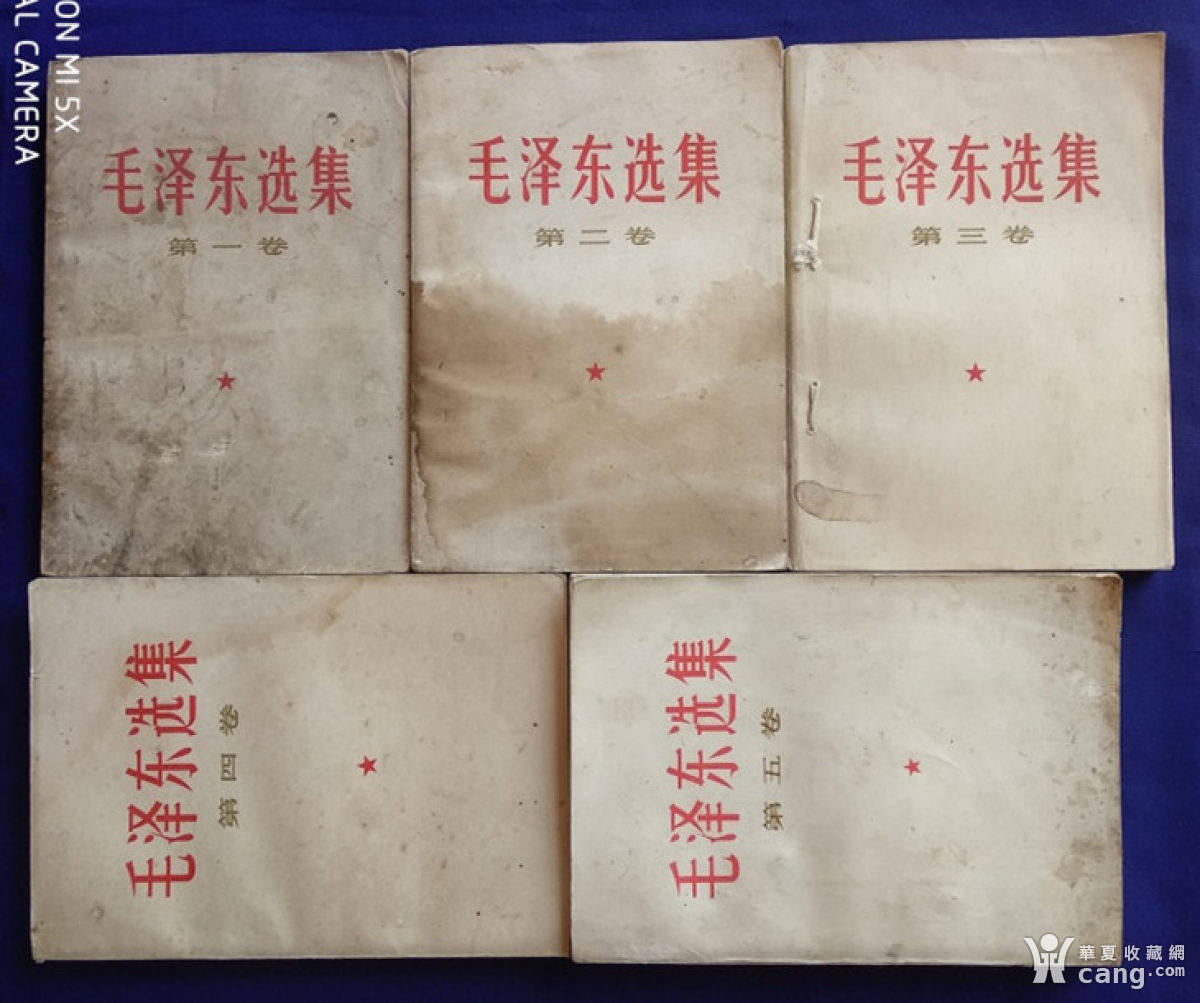 ON MI 5X
AL CAMERA
毛泽东选集
第一卷
毛泽东选集
第二卷
毛泽东选集
第三卷
毛泽东选集
第四卷
毛泽东选集
第五卷
華夏收藏網
cang.com